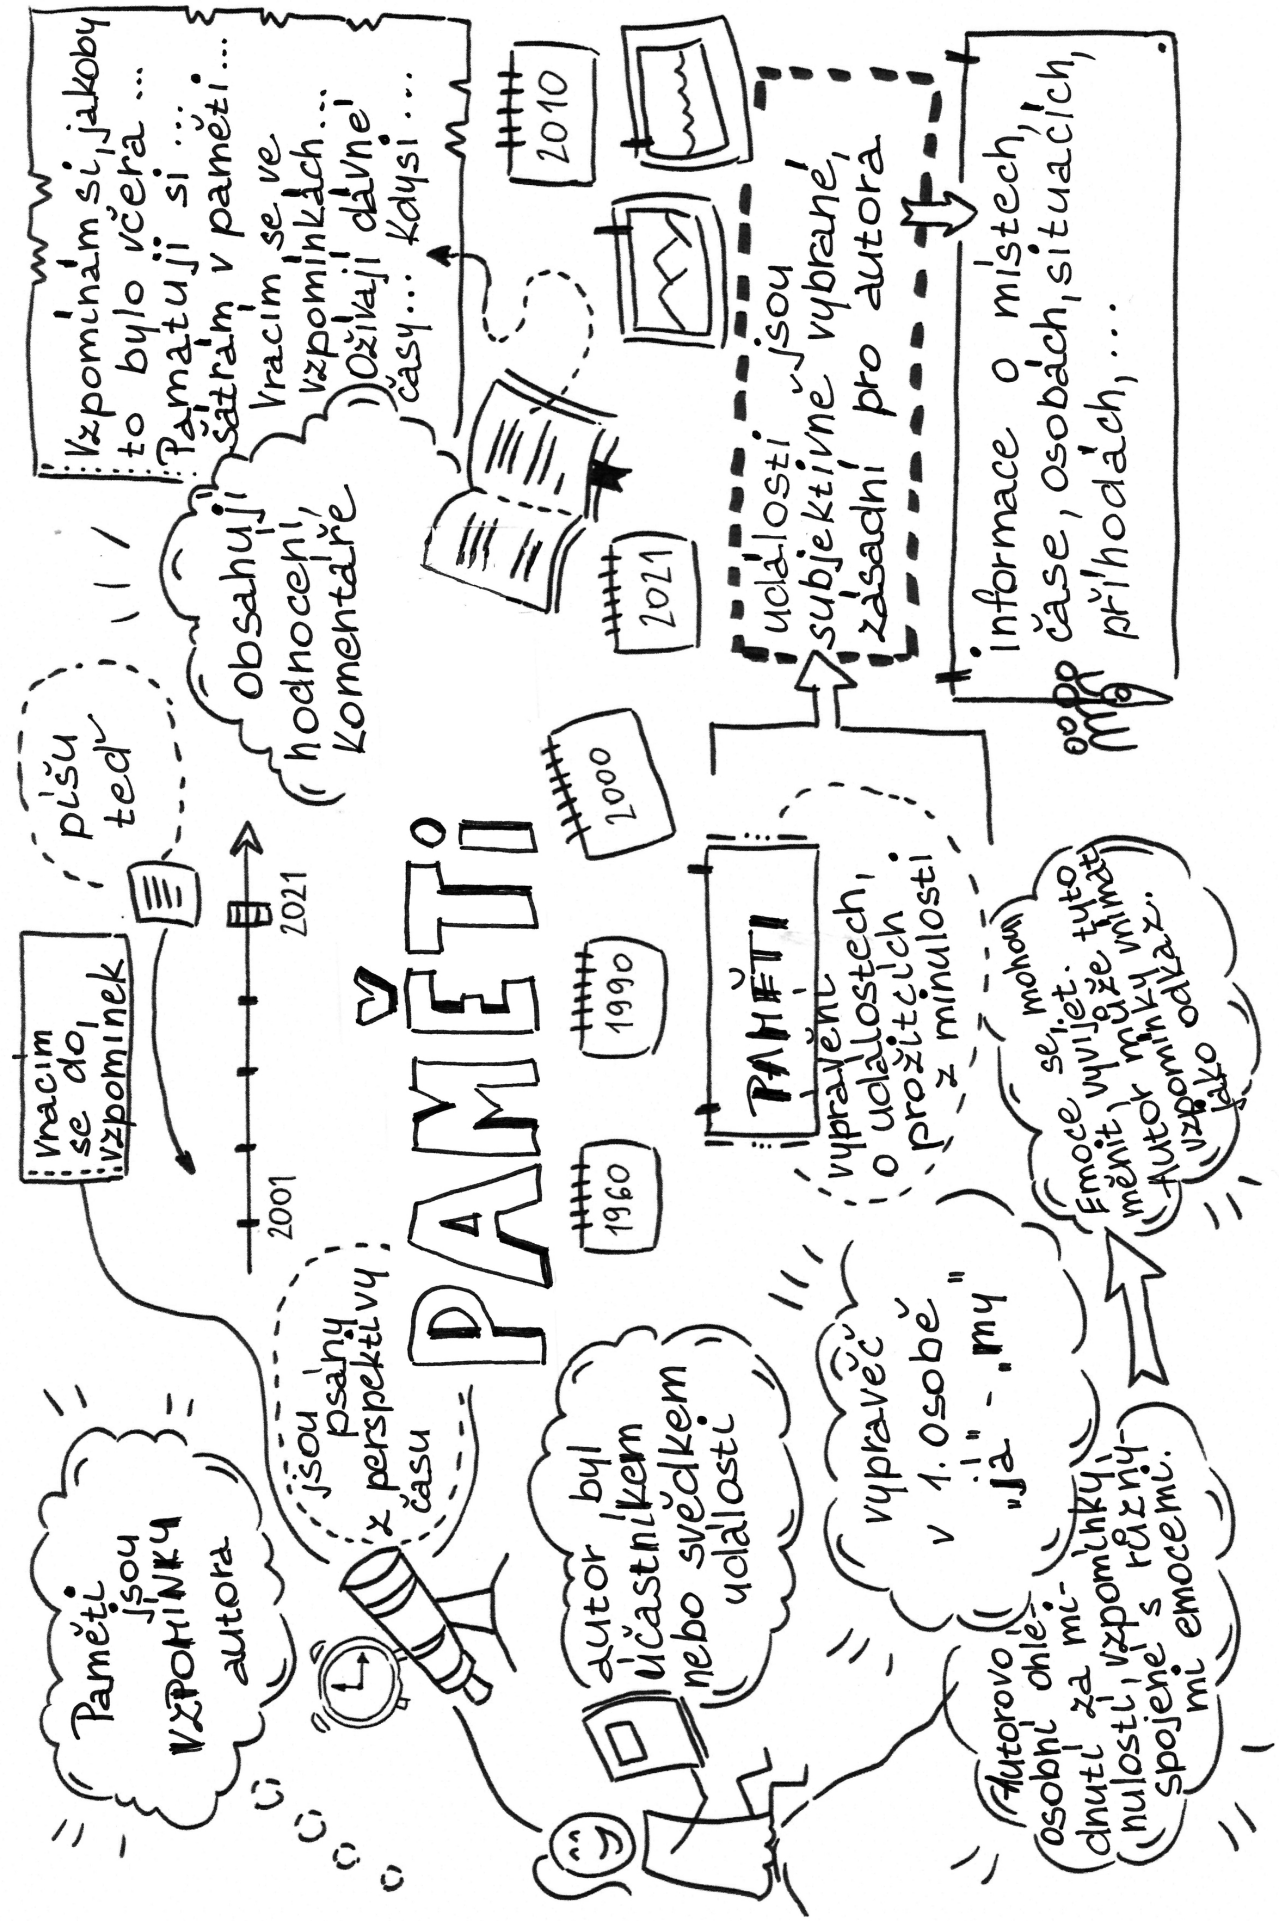 Paměti
jsou
VZPOMÍNKY
autora
vracím
se do
vzpomínek
píšu
teď
2001
2021
jsou
psány
z perspektivy
času
obsahují
hodnocení,
komentáře
Vzpomínám si, jakoby
to bylo včera...
Pamatuji si...
šátrám v paměti...
Vracím se ve
vzpomínkách...
Ožívají dávné
časy... Kdysi...
PAMĚTI
1960
1990
2000
2021
2010
autor byl
účastníkem
nebo svědkem
událostí
PAMĚTI
vyprávění
o událostech,
prožitcích
z minulosti
události jsou
subjektivně vybrané,
zásadní pro autora
informace o místech,
čase, osobách, situacích,
příhodách,...
vypravěč
v 1. osobě
„já" - „my"
Autorovo
osobní ohlé-
dnutí za mi-
nulostí, vzpomínky,
spojené s různý-
mi emocemi.
Emoce se mohou
měnit, vyvíjet.
Autor může tyto
vzpomínky vnímat
jako odkaz.